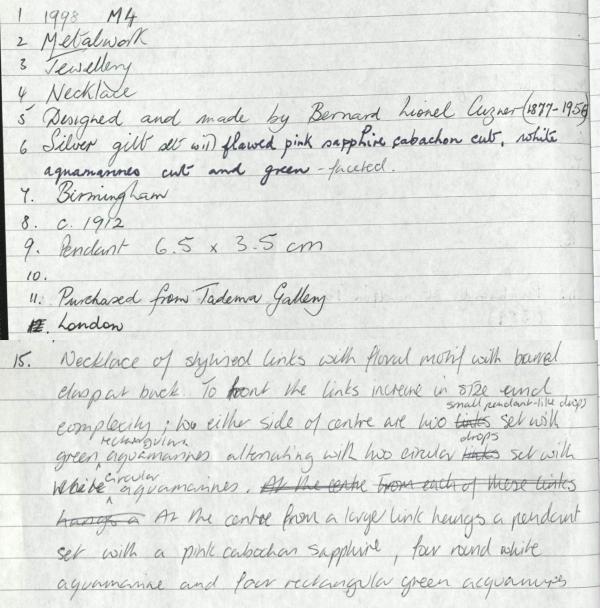 1 1998 M4
2 Metalwork
3 Jewellery
4 Necklace
5 Designed and made by Bernard Lionel Cuzner (1877-1956)
6 Silver gilt set with flawed pink sapphire cabachon cut, white
aquamarines cut and green - faceted.
7. Birmingham
8. c. 1912
9. Pendant 6.5 x 3.5 cm
10.
11. Purchased from Tadema Gallery
12. London
15. Necklace of stylised links with floral motif with barrel
clasp at back. To front the links increase in size and
small pendant-like drops
complexity; to either side of centre are two links set with
rectangular drops
green aquamarines alternating with two circular links set with
circular
white aquamarines. At the centre From each of these links
hangs a At the centre from a larger link hangs a pendant
set with a pink cabachan sapphire, four round white
aquamarine and four rectangular green